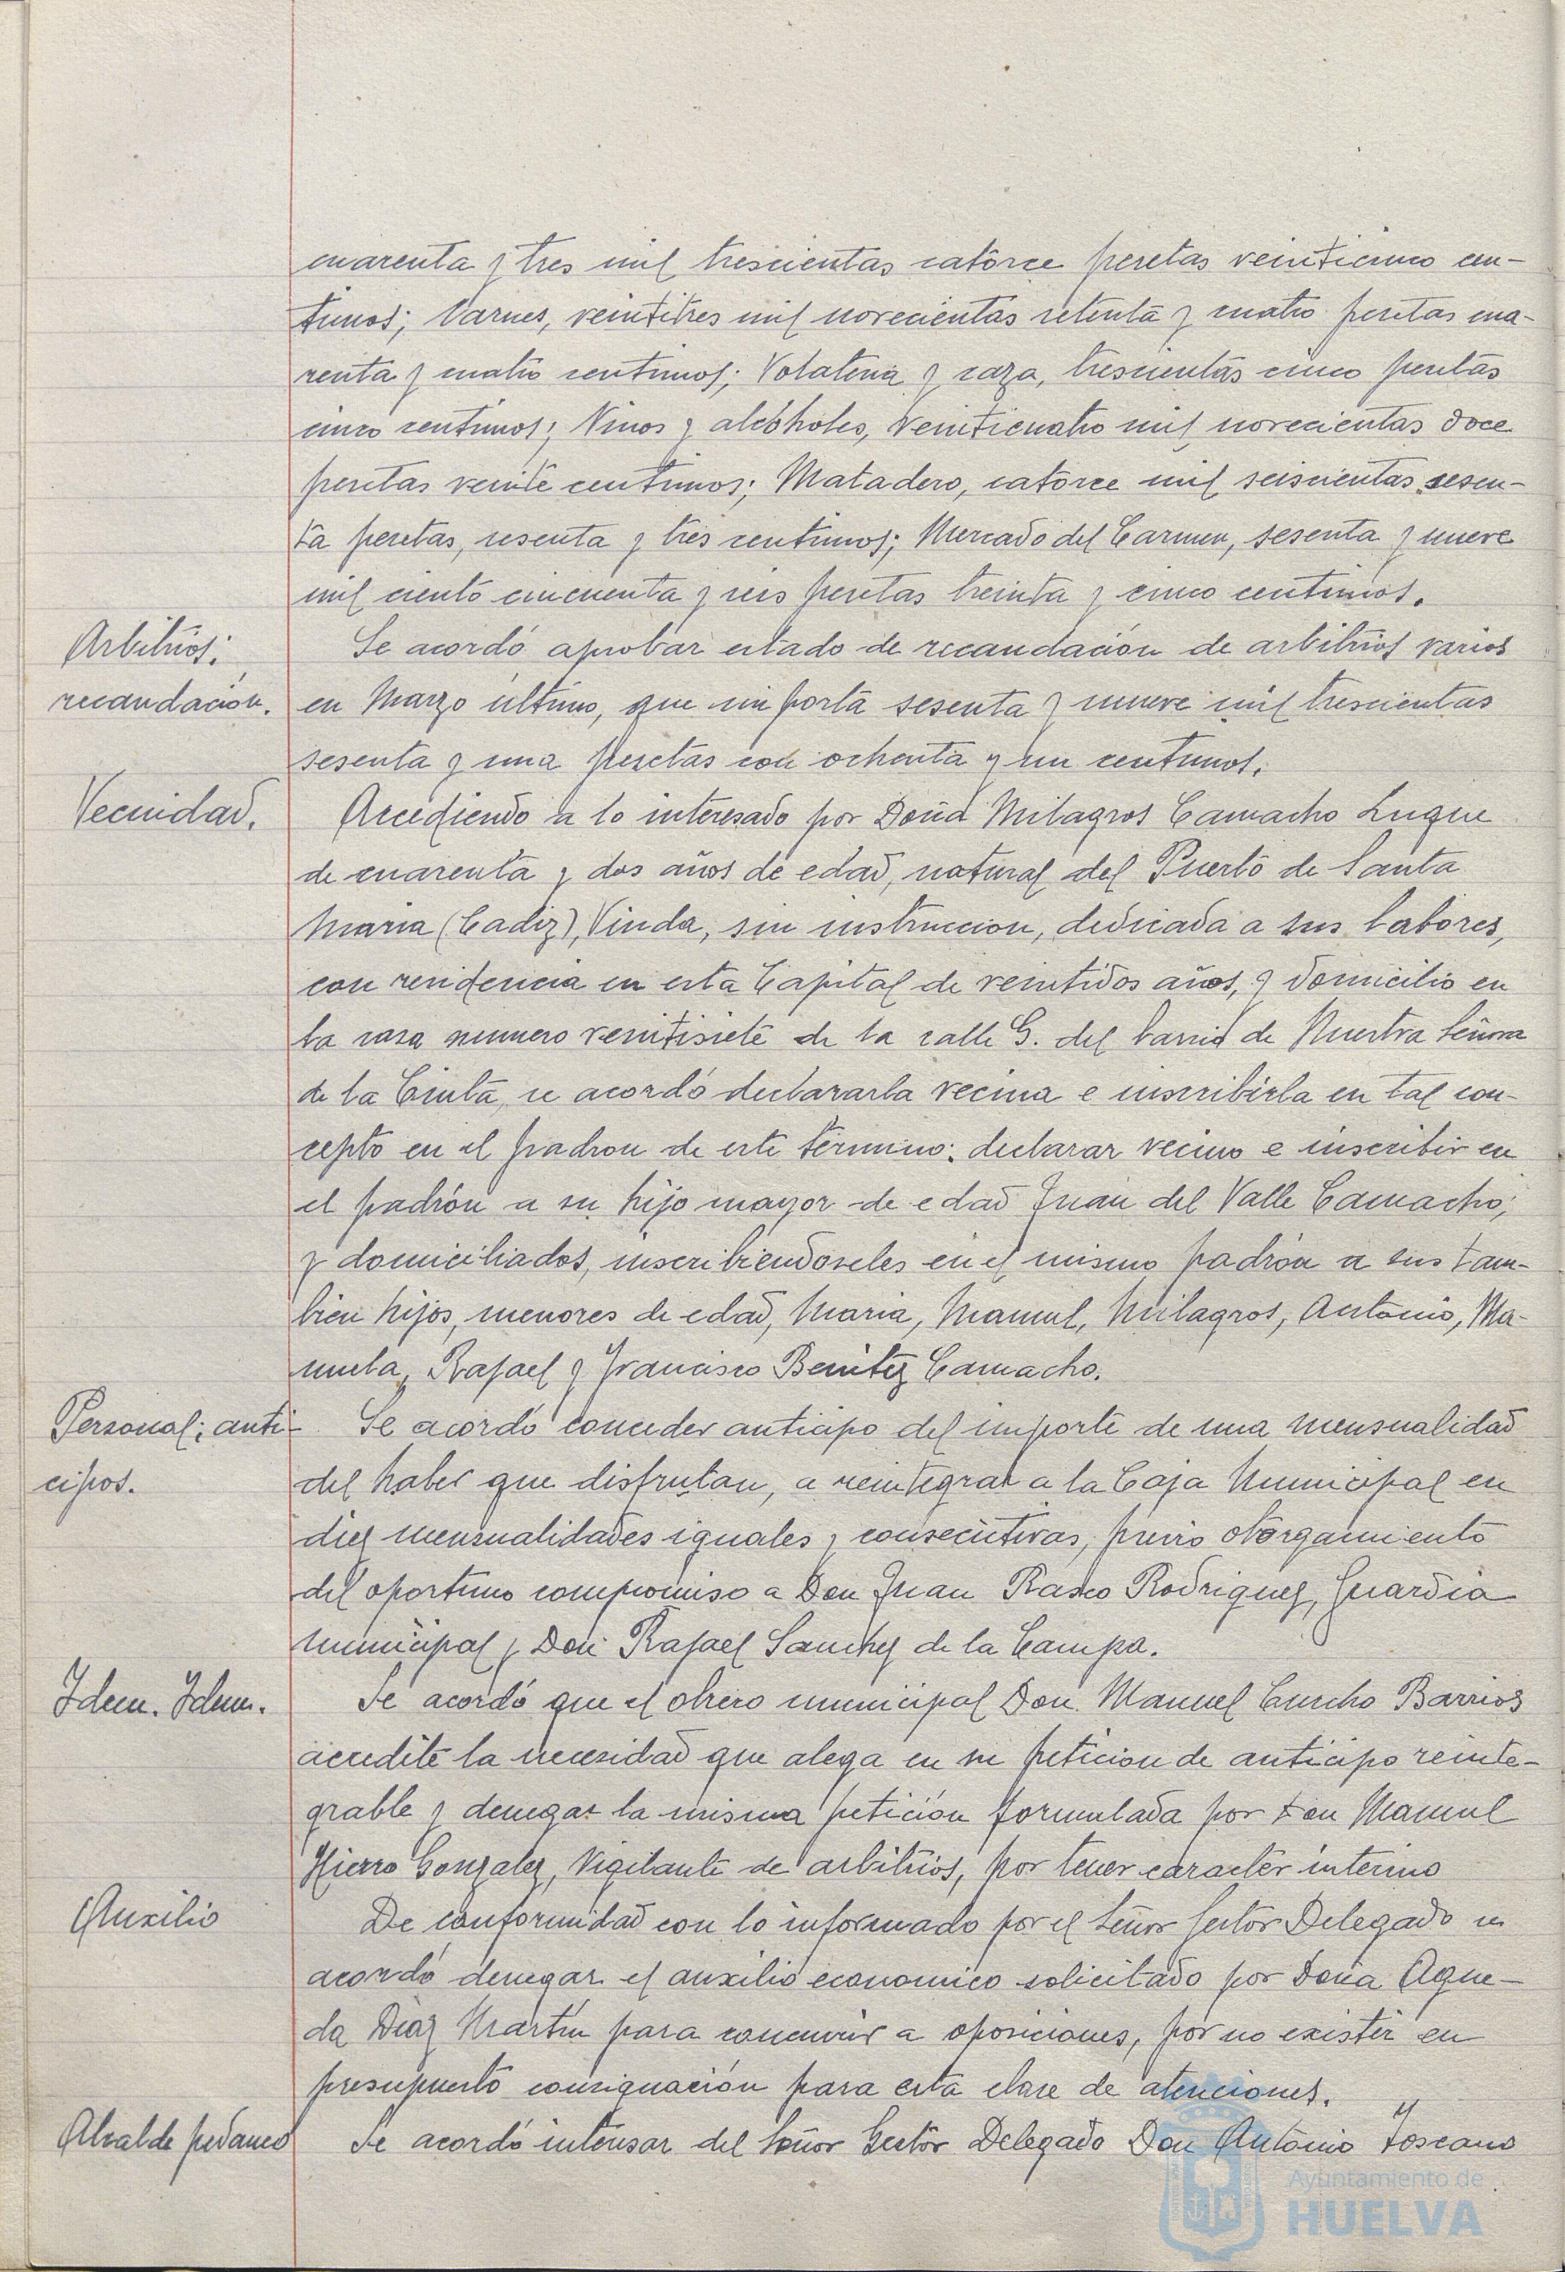 cuarenta y tres mil trescientas catorce pesetas veinticinco cen-
timos; Carnes, veintitres mil novecientas setenta y cuatro pesetas cua-
renta y cuatro centimos; Volateria y caza, trescientas cinco pesetas
cinco centimos; Vinos y alcoholes, veinticuatro mil novecientas doce
pesetas veinte centimos; Matadero, catorce mil seiscientas sesen-
ta pesetas, sesenta y tres centimos; Mercado del Carmen, sesenta y nueve
mil ciento cincuenta y seis pesetas treinta y cinco centimos.
Arbitrios:
recaudación.
Se acordó aprobar estado de recaudación de arbitrios varios
en Marzo último, que importa sesenta y nueve mil trescientas
sesenta y una pesetas con ochenta y un centimos.
Vecindad.
Accediendo a lo interesado por Doña Milagros Camacho Luque
de cuarenta y dos años de edad, natural del Puerto de Santa
Maria (Cadiz), Viuda, sin instruccion, dedicada a sus labores,
con residencia en esta Capital de veintidos años, y domicilio en
la casa numero veintisiete de la calle G. del barrio de Nuestra Señora
de la Cinta, se acordó declararla vecina e inscribirla en tal con-
cepto en el padron de este término; declarar vecino e inscribir en
el padrón a su hijo mayor de edad Juan del Valle Camacho;
y domiciliados, inscribiendoseles en el mismo padrón a sus tam-
bien hijos, menores de edad, Maria, Manuel, Milagros, Antonio, Ma-
nuela, Rafael y Francisco Benitez Camacho.
Personal; anti-
cipos.
Se acordó conceder anticipo del importe de una mensualidad
del haber que disfrutan, a reintegrar a la Caja Municipal en
diez mensualidades iguales y consecutivas, previo otorgamiento
del oportuno compromiso a Don Juan Rasco Rodriguez, Guardia
Municipal y Don Rafael Sanchez de la Campa.
Idem. Idem.
Se acordó que el obrero municipal Don Manuel Barrios
acredite la necesidad que alega en su peticion de anticipo reinte-
grable y denegar la misma petición formulada por Don Manuel
Hierro Gonzalez, Vigilante de arbitrios, por tener caracter interino
Auxilio
De conformidad con lo informado por el Señor Gestor Delegado se
acordó denegar el auxilio economico solicitado por Doña Ague-
da Diaz Martín para concurrir a oposiciones, por no existir en
presupuesto consignación para esta clase de atenciones.
Alcalde pedaneo
Se acordó interesar del Señor Gestor Delegado Don Antonio Toscano
y
Ayuntamiento de
HUELVA